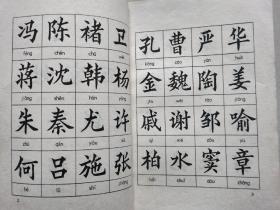 冯 陈 褚 卫
féng chén chǔ wèi
蒋 沈 韩 杨
jiǎng shěn hán yáng
朱 秦 尤 许
zhū qín yóu xǔ
何 吕 施 张
hé lǚ shī zhāng
2
孔 曹 严 华
kǒng cáo yán huà
金 魏 陶 姜
jīn wèi táo jiāng
戚 谢 邹 喻
qī xiè zōu yù
柏 水 窦 章
bǎi shuǐ dòu zhāng
3